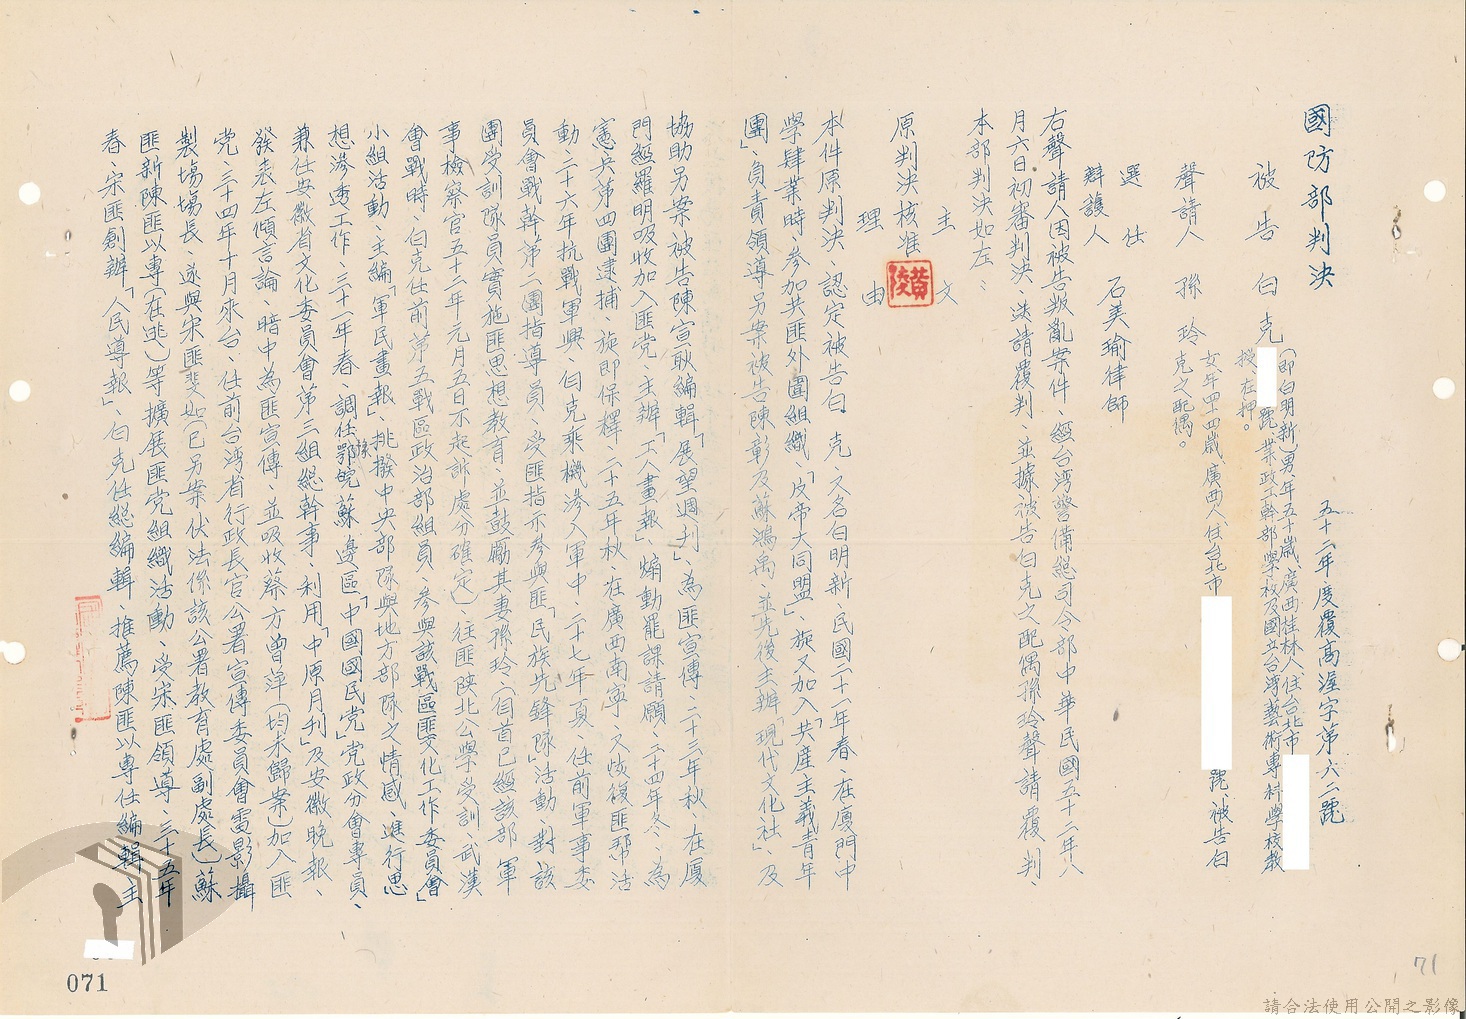 國防部判決
五十二年度覆高渥字第六二號
被告 白克(即白明新)男年五十歲、廣西桂林人、住台北市
號、業政工幹部學校及國立台灣藝術專科學校教
授、在押。
聲請人 孫玲 女年四十四歲、廣西人、住台北市 號、被告白
克之配偶。
選任
辯護人 石美瑜律師
右聲請人因被告叛亂案件、經台灣警備總司令部中華民國五十二年八
月六日初審判決、送請覆判、並據被告白克之配偶孫玲聲請覆判、
本部判決如左:
主文
原判決核准
理由
本件原判決、認定被告白克、又名白明新、民國二十一年春、在廈門中
學肄業時、參加共匪外圍組織、「反帝大同盟」、旋又加入「共產主義青年
團」、負責領導另案被告陳彰及蘇鴻禹、並先後主辦「現代文化社」、及
協助另案被告陳宣耿編輯「展望週刊」、為匪宣傳、二十三年秋、在廈
門經羅明吸收加入匪党、主辦「工人畫報」、煽動罷課請願、二十四年冬、為
憲兵第四團逮捕、旋即保釋、二十五年秋、在廣西南寧、又恢復匪幫活
動、二十六年抗戰軍興、白克乘機滲入軍中、二十七年夏、任前軍事委
員會戰幹第二團指導員、受匪指示參與匪「民族先鋒隊」活動、對該
團受訓隊員實施匪思想教育、並鼓勵其妻孫玲(自首已經該部軍
事檢察官五十二年元月五日不起訴處分確定)往匪陝北公學受訓、武漢
會戰時、白克任前第五戰區政治部組員、參與該戰區匪「文化工作委員會」
小組活動、主編「軍民畫報」、挑撥中央部隊與地方部隊之情感、進行思
想滲透工作、三十一年春、調任鄂豫皖蘇邊區「中國國民党」党政分會專員、
兼任安徽省文化委員會第三組總幹事、利用「中原月刊」及安徽晚報、
發表左傾言論、暗中為匪宣傳、並吸收蔡方曾萍(均未歸案)加入匪
党、三十四年十月來台、任前台灣省行政長官公署宣傳委員會電影攝
製場場長、遂與宋匪斐如(已另案伏法係該公署教育處副處長)蘇
匪新陳匪以專(在逃)等擴展匪党組織活動、受宋匪領導、三十五年
春、宋匪創辦「人民導報」、白克任總編輯、推薦陳匪以專任編輯主
黃陵
071
71
請合法使用公開之影像